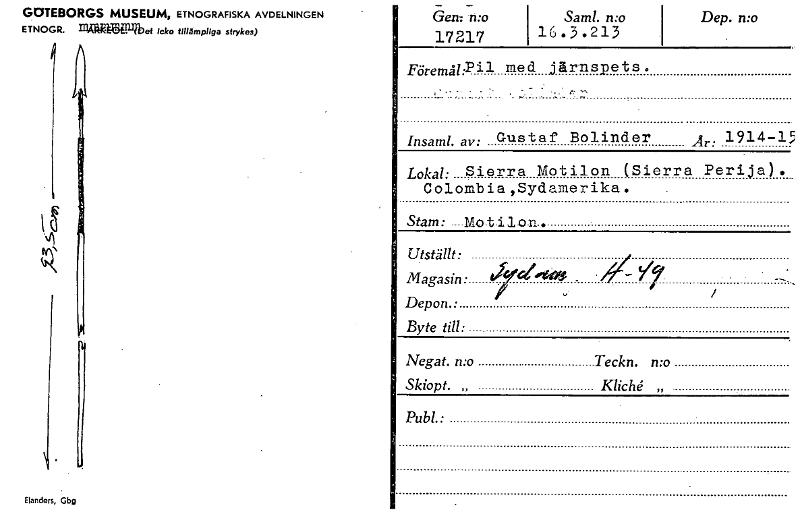 GÖTEBORGS MUSEUM, ETNOGRAFISKA AVDELNINGEN
ETNOGR. ARKEOL. (Det icke tillämpliga strykes)
93,5 cm
Elanders, Gbg
Gen: n:o Saml. n:o Dep. n:o
17217 16.3.213
Föremål: Pil med järnspets.
Insaml. av: Gustaf Bolinder År: 1914-15
Lokal: Sierra Motilon (Sierra Perija).
Colombia,Sydamerika.
Stam: Motilon.
Utställt:
Magasin: Sydam H-49
Depon.:
Byte till:
Negat. n:o Teckn. n:o
Skiopt. „ Kliché „
Publ.: